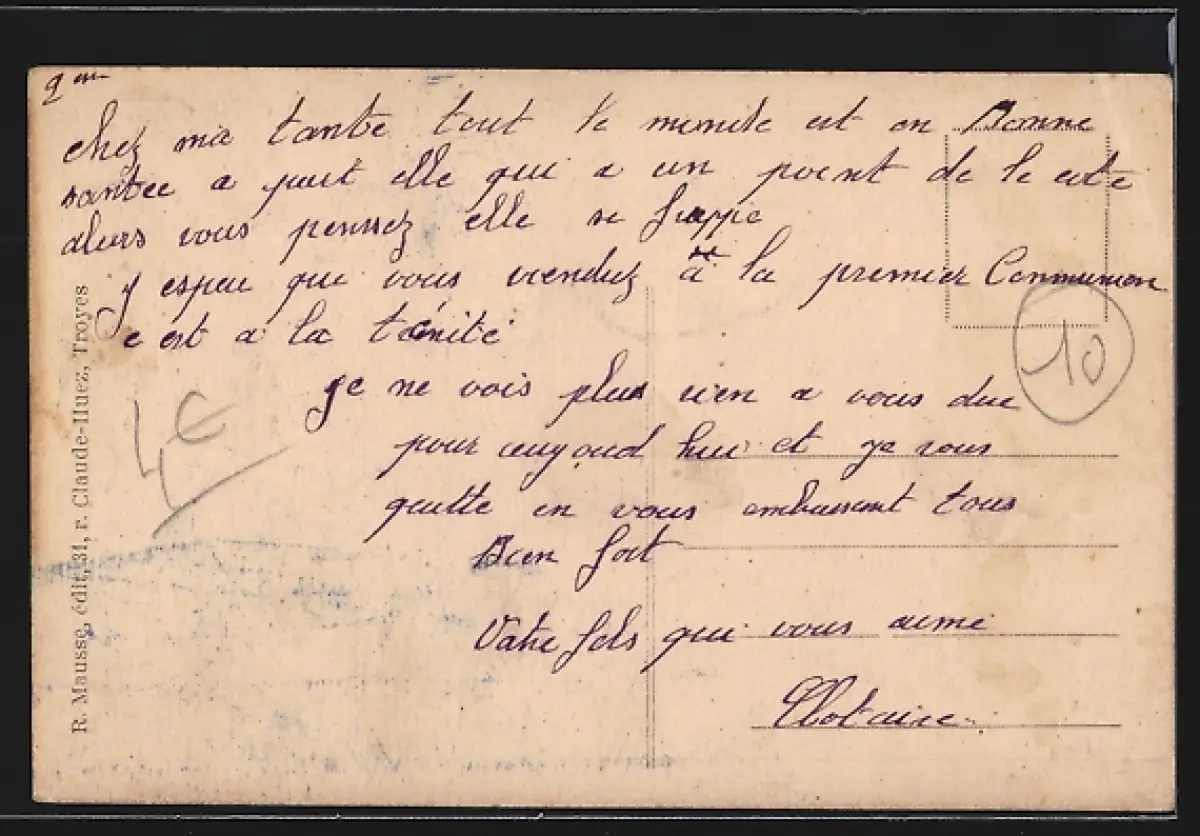 2em
chez ma tante tout le monde est en Bonne
santee a part elle qui a un point de le cote
alors vous penssez elle se frappe
y esper que vous viendrez à la premier Communion
c est a la trinité
je ne vois plus rien a vous dire
pour aujourd hui et je vous
quitte en vous embrassent tous
Bien fort
Votre fils qui vous aime
Clotaire
4€
10
R. Mausse, édit, 31, r. Claude-Huez, Troyes